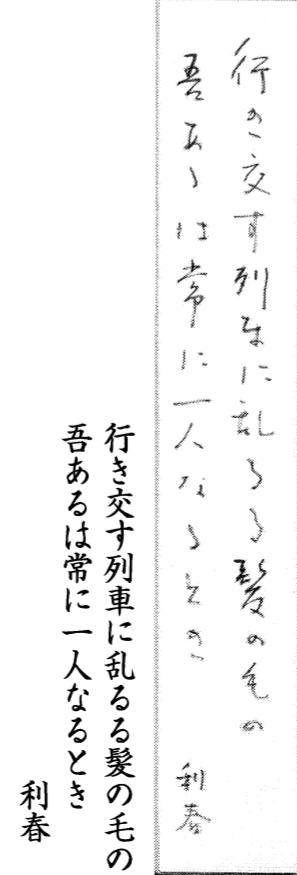 行き交す列車に乱るる髪の毛の
吾あるは常に一人なるとき
利春
行き交す列車に乱るる髪の毛の
吾あるは常に一人なるとき
利春